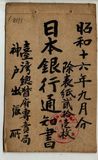 昭和十六年九月分
除製紙貳拾壹枚
日本銀行通知書
臺灣總督府專賣局
神戸出張所